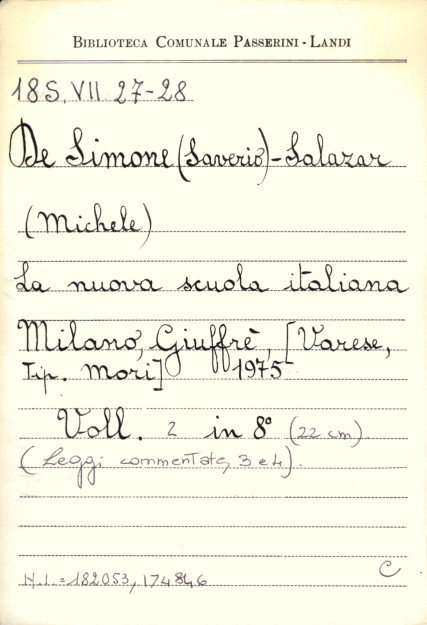 BIBLIOTECA COMUNALE PASSERINI - LANDI
18 S. VII 27-28
De Simone (Saverio) - Salazar
(Michele)
La nuova scuola italiana
Milano, Giuffrè, [Varese,
Tip. Mori] 1975
Voll. 2 in 8° (22 cm).
(Leggi commentate, 3 e 4).
C
N.I. = 182053, 174846